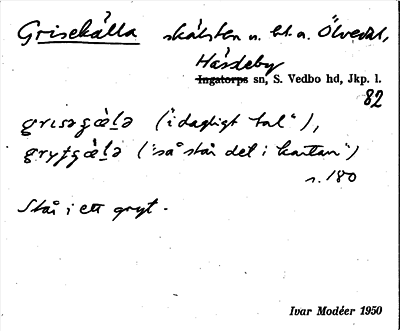 Grisekälla skälsten n. bl. a. Ölvedal,
Hässleby
Ingatorps sn, S. Vedbo hd, Jkp. l.
82
grisəgæ̀lə ("i dagligt tal"),
grytgæ̀lə ("så står det i kartan")
s. 180
Står i ett gryt.
Ivar Modéer 1950